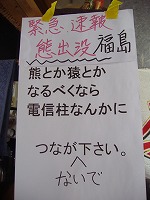 緊急 速報
熊出没 福島
熊とか猿とか
なるべくなら
電信柱なんかに
つなが下さい。
ないで